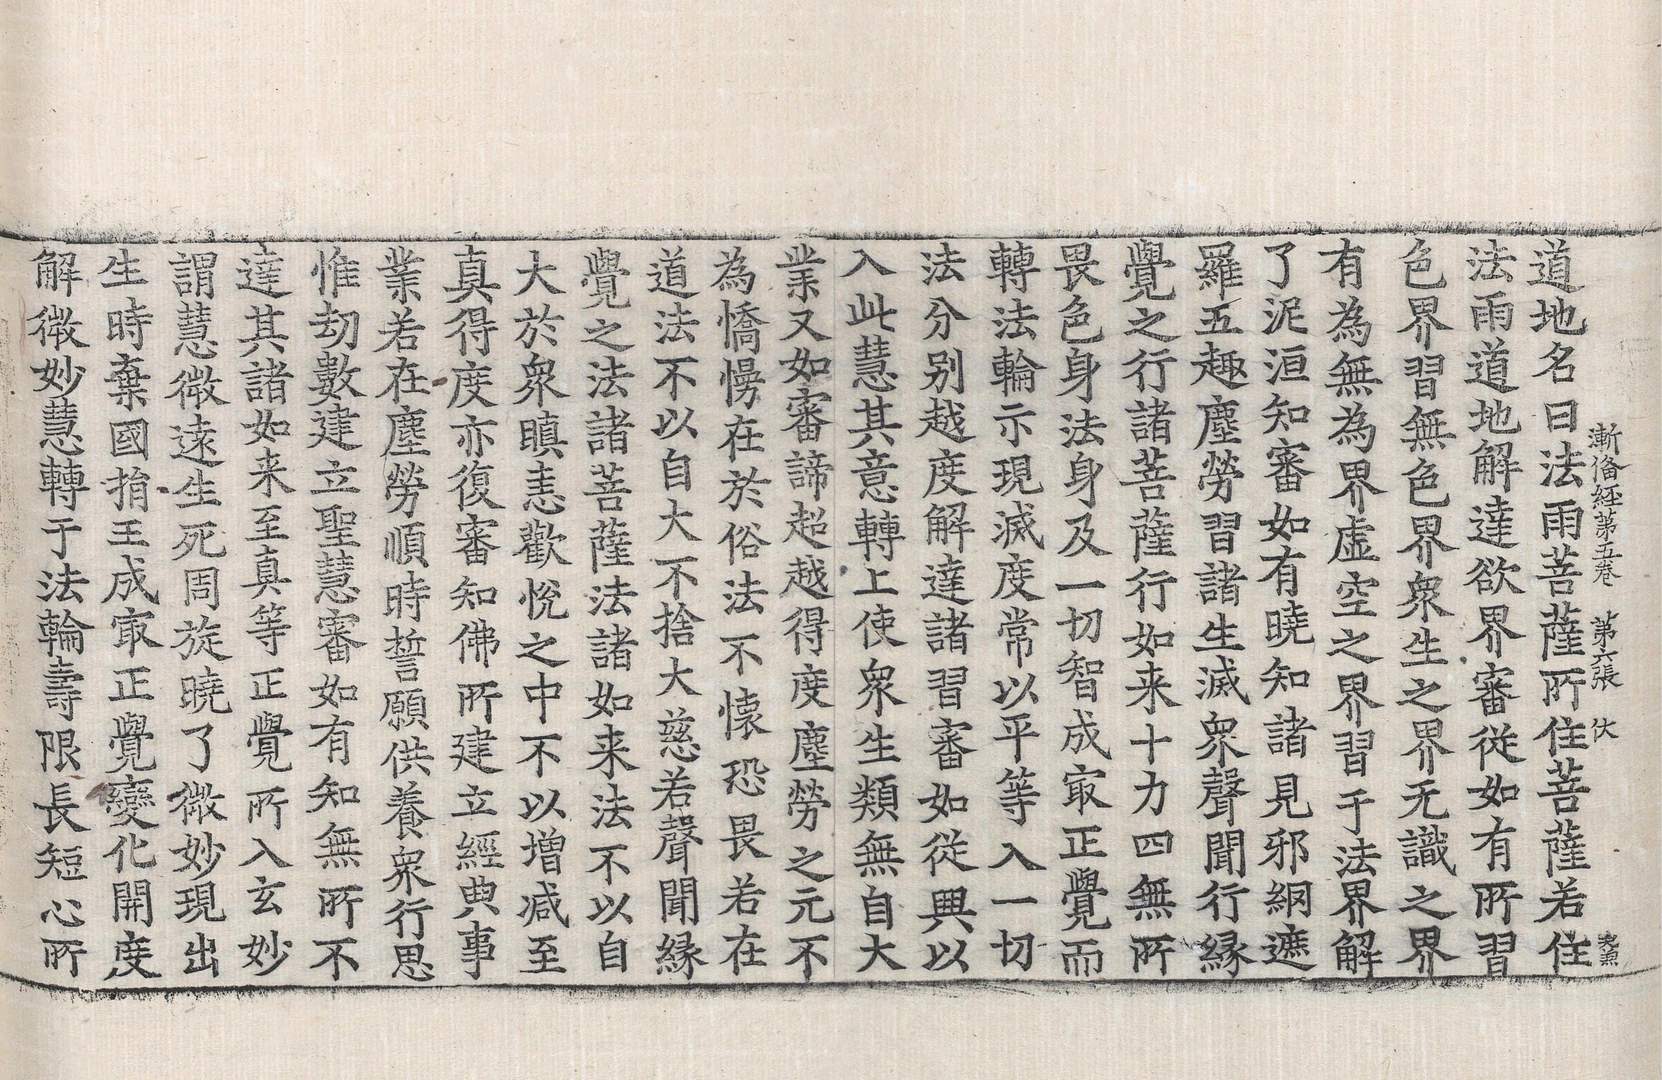 漸俻経第五卷 第六張 伏
道地名曰法雨菩薩所住菩薩若住
法雨道地解達欲界審從如有所習
色界習無色界衆生之界无識之界
有為無為界虚空之界習于法界解
了泥洹知審如有曉知諸見邪網遮
羅五趣塵勞習諸生滅衆聲聞行縁
覺之行諸菩薩行如来十力四無所
畏色身法身及一切智成㝡正覺而
轉法輪示現滅度常以平等入一切
法分别越度解達諸習審如従興以
入此慧其意轉上使衆生類無自大
業又如審諦超越得度塵勞之元不
為憍慢在於俗法不懐恐畏若在
道法不以自大不捨大慈若聲聞縁
覺之法諸菩薩法諸如来法不以自
大於衆瞋恚歡悅之中不以增減至
真得度亦復審知佛所建立經典事
業若在塵勞順時誓願供養衆行思
惟劫數建立聖慧審如有知無所不
達其諸如来至真等正覺所入玄妙
謂慧微遠生死周旋曉了微妙現出
生時棄國捐王成㝡正覺變化開度
解微妙慧轉于法輪壽限長短心所